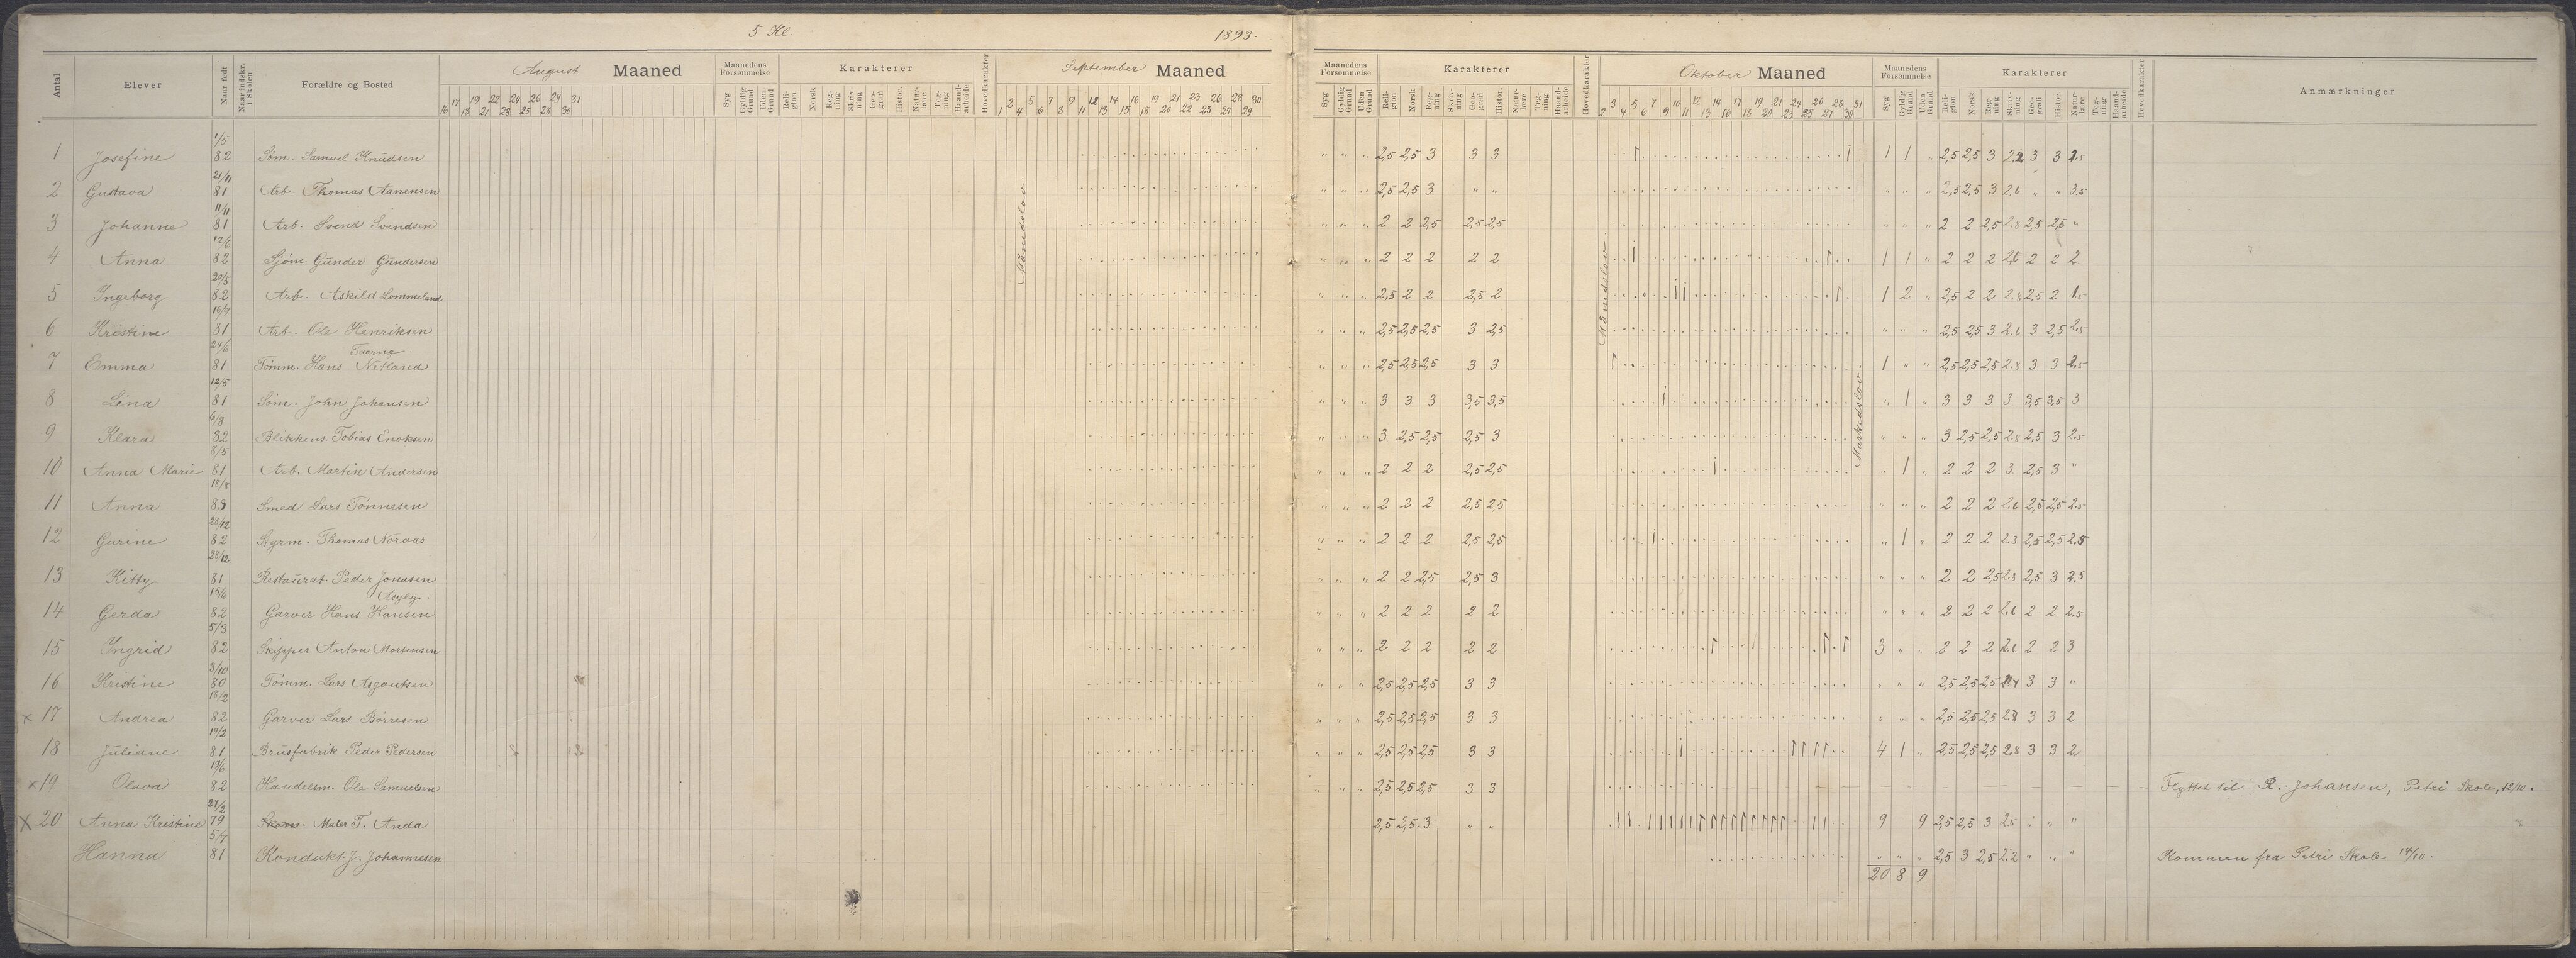 5 Kl. 1893.
Antal Elever Naar født Naar indskr. i Skolen Forældre og Bosted August Maaned Maanedens Forsømmelse Syg Gyldig Grund Uden Grund Karakterer Religion Norsk Regning Skrivning Geografi Histor. Naturlære Tegning Haandarbeide Hovedkarakter September Maaned Maanedens Forsømmelse Syg Gyldig Grund Uden Grund Karakterer Religion Norsk Regning Skrivning Geografi Histor. Naturlære Tegning Haandarbeide Hovedkarakter Oktober Maaned Maanedens Forsømmelse Syg Gyldig Grund Uden Grund Karakterer Religion Norsk Regning Skrivning Geografi Histor. Naturlære Tegning Haandarbeide Hovedkarakter Anmærkninger
16 17 18 19 21 22 23 24 25 26 28 29 30 31 1 2 4 5 6 7 8 9 11 12 13 14 15 16 18 19 20 21 22 23 25 26 27 28 29 30 2 3 4 5 6 7 9 10 11 12 13 14 16 17 18 19 20 21 23 24 25 26 27 28 30 31
Månedslov
Månedslov.
Markedslov.
1 Josefine 1/5 82 Søm. Samuel Knudsen " " " 2,5 2,5 3 3 3 1 1 " 2,5 2,5 3 3 3
2 Gustava 21/11 81 Arb. Thomas Aanensen " " " 2,5 2,5 3 " " " " " 2,5 2,5 3 2.6 " " 3.5
3 Johanne 11/11 81 Arb. Svend Svendsen " " " 2 2 2,5 2,5 2,5 " " " 2 2 2,5 2.8 2,5 2,5 "
4 Anna 12/6 82 Sjøm. Gunder Gundersen " " " 2 2 2 2 2 1 1 " 2 2 2 2,6 2 2 2
5 Ingeborg 20/5 82 Arb. Askild Lommeland " " " 2,5 2 2 2,5 2 1 2 " 2,5 2 2 2.8 2,5 2
6 Kristine 81 Arb. Ole Henriksen " " " 2,5 2,5 2,5 3 2,5 " " " 2,5 2,5 3 2.6 3 2,5 2.5
7 Emma 24/6 81 Tømm. Hans Netland " " " 2,5 2,5 2,5 3 3 1 " " 2,5 2,5 2,5 2.8 3 3 2.5
8 Lina 12/5 81 Søm. John Johansen " " " 3 3 3 3,5 3,5 " 1 " 3 3 3 3 3,5 3,5 3
9 Klara 6/8 82 Blikkens. Tobias Enoksen " " " 3 2,5 2,5 2,5 3 " " " 3 2,5 2,5 2.8 2,5 3 2.5
10 Anna Marie 8/5 81 Arb. Martin Andersen " " " 2 2 2 2,5 2,5 " 1 " 2 2 2 3 2,5 3 "
11 Anna 18/8 83 Smed Lars Tønnesen " " " 2 2 2 2,5 2,5 " " " 2 2 2 2.6 2,5 2,5 2.5
12 Gurine 28/12 82 Styrm. Thomas Noraas " " " 2 2 2 2,5 2,5 " 1 " 2 2 2 2.3 2,5 2,5 2.5
13 Kitty 28/12 81 Restaurat. Peder Jonasen " " " 2 2 2,5 2,5 3 " " " 2 2 2,5 2.8 2,5 3 2.5
14 Gerda 15/6 82 Garver Hans Hansen " " " 2 2 2 2 2 " " " 2 2 2 2.6 2 2 2.5
15 Ingrid 5/3 82 Skipper Anton Mortensen " " " 2 2 2 2 2 3 " " 2 2 2 2.6 2 2 3
16 Kristine 3/10 80 Tømm. Lars Asgautsen " " " 2,5 2,5 2,5 3 3 " " " 2,5 2,5 2,5 3 3 "
x 17 Andrea 18/2 82 Garver Lars Børresen " " " 2,5 2,5 2,5 3 3 " " " 2,5 2,5 2,5 2.8 3 3 2
18 Juliane 81 Brusfabrik Peder Pedersen " " " 2,5 2,5 2,5 3 3 4 1 " 2,5 2,5 2,5 2.8 3 3 2
x 19 Olava 19/6 82 Handelsm. Ole Samuelsen " " " 2,5 2,5 2,5 3 3 Flyttet til R. Johansen, Petri Skole, 12/10.
x 20 Anna Kristine 27/2 79 Maler T. Anda 2,5 2,5 3 " " 9 9 2,5 2,5 3 2.5 " " "
Hanna 5/7 81 Kondukt. J. Johannesen " " " 2,5 3 2,5 2.2 " " " Kommen fra Petri Skole 14/10.
20 8 9